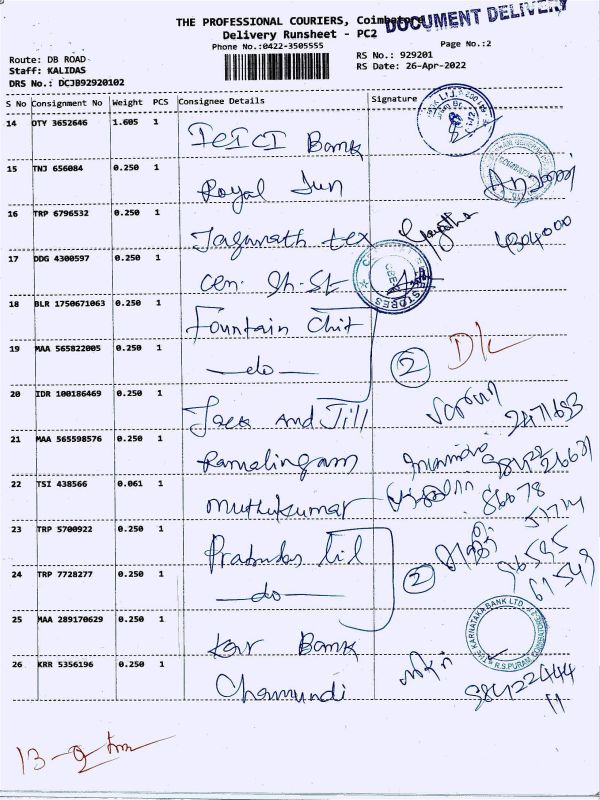 THE PROFESSIONAL COURIERS, Coimbatore
DOCUMENT DELIVERY
Delivery Runsheet - PC2
Phone No.:0422-3505555
Page No.:2
Route: DB ROAD
RS No.: 929201
Staff: KALIDAS
RS Date: 26-Apr-2022
DRS No.: DCJB92920102
S No Consignment No Weight PCS Consignee Details Signature
14 DTY 3652646 1.605 1 ICICI Bank
15 TNJ 656084 0.250 1 Royal Sun
16 TRP 6796532 0.250 1 Jaganath tex 4304000
17 DDG 4300597 0.250 1 Cen. Sh. St
STORES
18 BLR 1750671063 0.250 1 Fountain Chit
19 MAA 565822005 0.250 1 -do- 2 D/c
20 IDR 100186469 0.250 1 Jack And Jill
21 MAA 565598576 0.250 1 Ramalingam
22 TSI 438566 0.061 1 Muthukumar 86078
23 TRP 5700922 0.250 1
24 TRP 7728277 0.250 1 -do- 2 61549
THE KARNATAKA BANK LTD. R.S.PURAM, COIMBATORE
25 MAA 289170629 0.250 1 Kar Bank
26 KRR 5356196 0.250 1 Chamundi